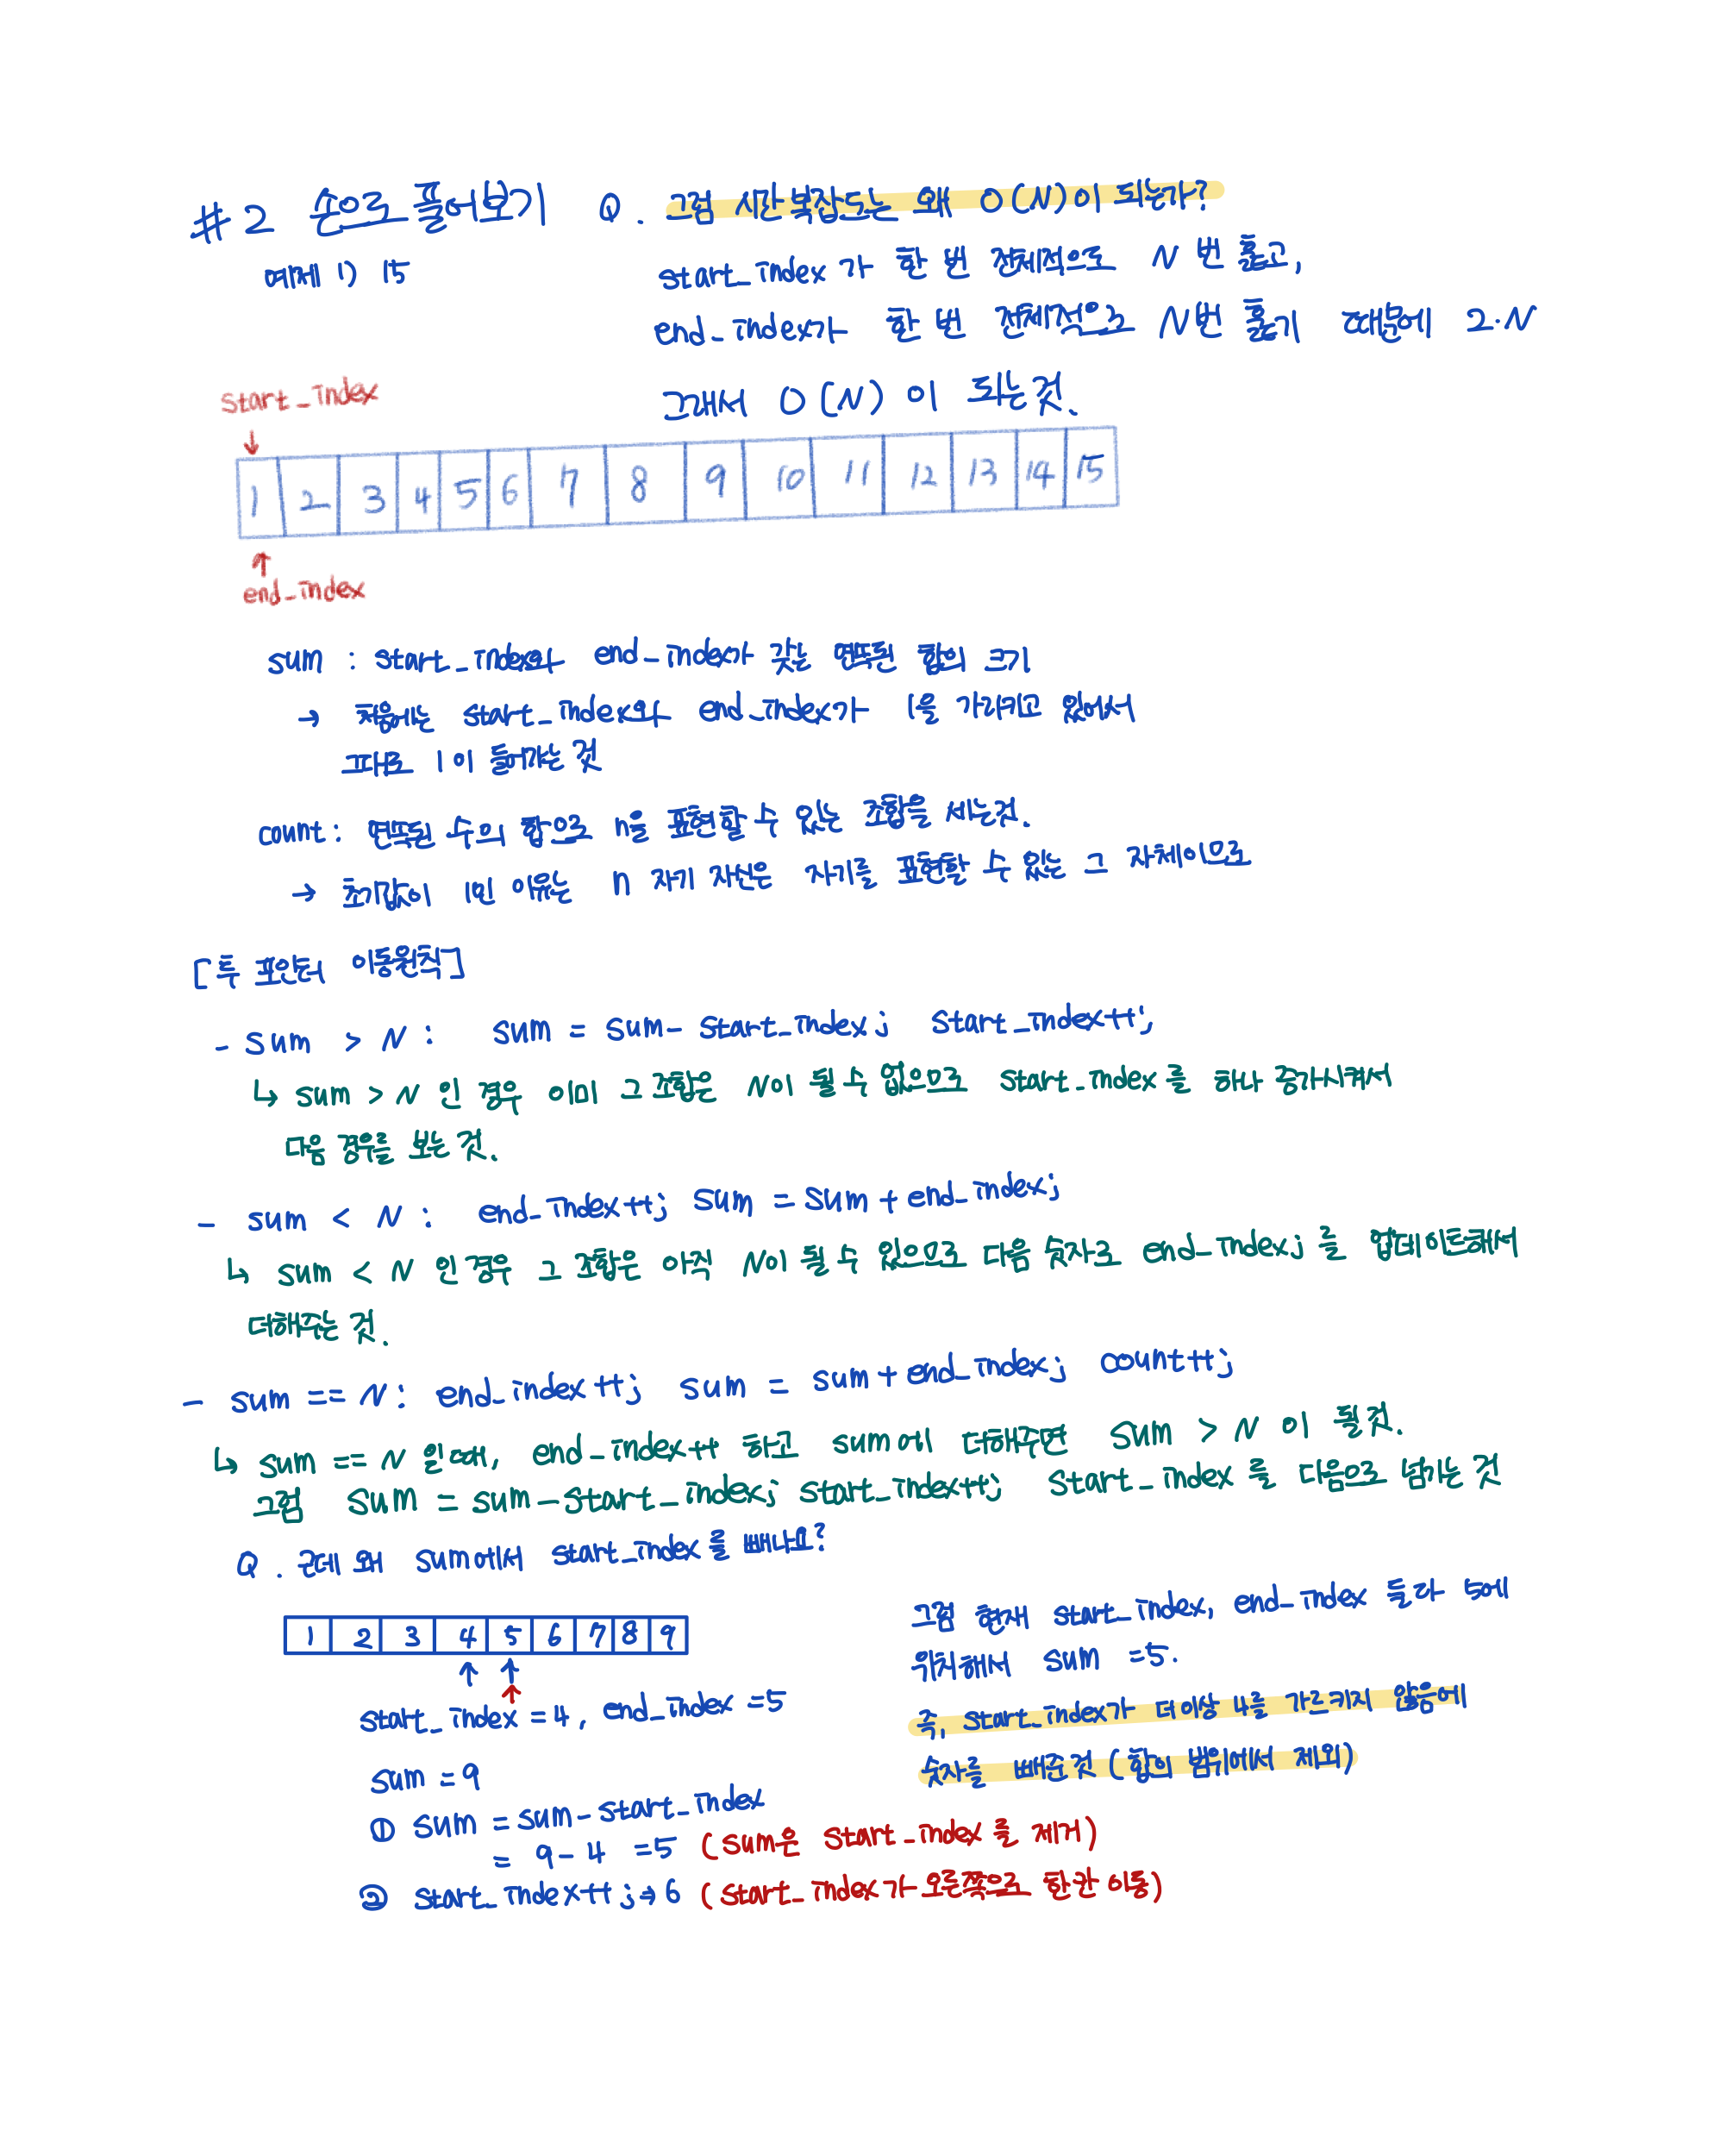 #2 손으로 풀어보기
예제 1) 15
Q. 그럼 시간 복잡도는 왜 O(N)이 되는가?
start_index가 한 번 전체적으로 N 번 훑고,
end_index가 한 번 전체적으로 N번 훑기 때문에 2·N
그래서 O(N)이 되는것.
start_index
↓
1 2 3 4 5 6 7 8 9 10 11 12 13 14 15
↑
end_index
sum : start_index와 end_index가 갖는 연속된 합의 크기
→ 처음에는 start_index와 end_index가 1을 가리키고 있어서
그대로 1이 들어가는 것
count : 연속된 수의 합으로 n을 표현할 수 있는 조합을 세는것.
→ 초기값이 1인 이유는 n 자기 자신은 자기를 표현할 수 있는 그 자체이므로
[투 포인터 이동원칙]
- sum > N : sum = sum - start_index; start_index++;
↳ sum > N 인 경우 이미 그 조합은 N이 될 수 없으므로 start_index를 하나 증가시켜서
다음 경우를 보는 것.
- sum < N : end_index++; sum = sum + end_index;
↳ sum < N 인 경우 그 조합은 아직 N이 될 수 있으므로 다음 숫자로 end_index; 를 업데이트해서
더해주는 것.
- sum == N : end_index++; sum = sum + end_index; count++;
↳ sum == N 일때, end_index++ 하고 sum에 더해주면 sum > N 이 될것.
그럼 sum = sum - start_index; start_index++; start_index를 다음으로 넘기는 것
Q. 근데 왜 sum에서 start_index를 빼나요?
1 2 3 4 5 6 7 8 9
↑ ↑
↑
start_index = 4, end_index = 5
sum = 9
① sum = sum - start_index
= 9 - 4 = 5 (sum은 start_index를 제거)
② start_index++; → 6 (start_index가 오른쪽으로 한칸 이동)
그럼 현재 start_index, end_index 둘다 5에
위치해서 sum = 5.
즉, start_index가 더이상 4를 가르키지 않음에
숫자를 빼준것 (합의 범위에서 제외)